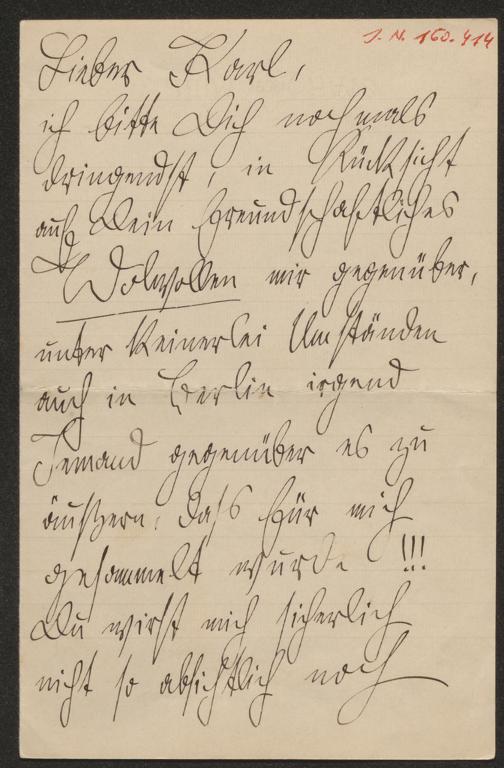 J. N. 160.414
Lieber Karl,
ich bitte Dich nochmals
dringendst, in Rücksicht
auf Dein freundschaftliches
Wolwollen mir gegenüber,
unter keinerlei Umständen
auch in Berlin irgend
Jemand gegenüber es zu
äußern, dass für mich
gesammelt wurde !!!
Du wirst mich sicherlich
nicht so absichtlich noch